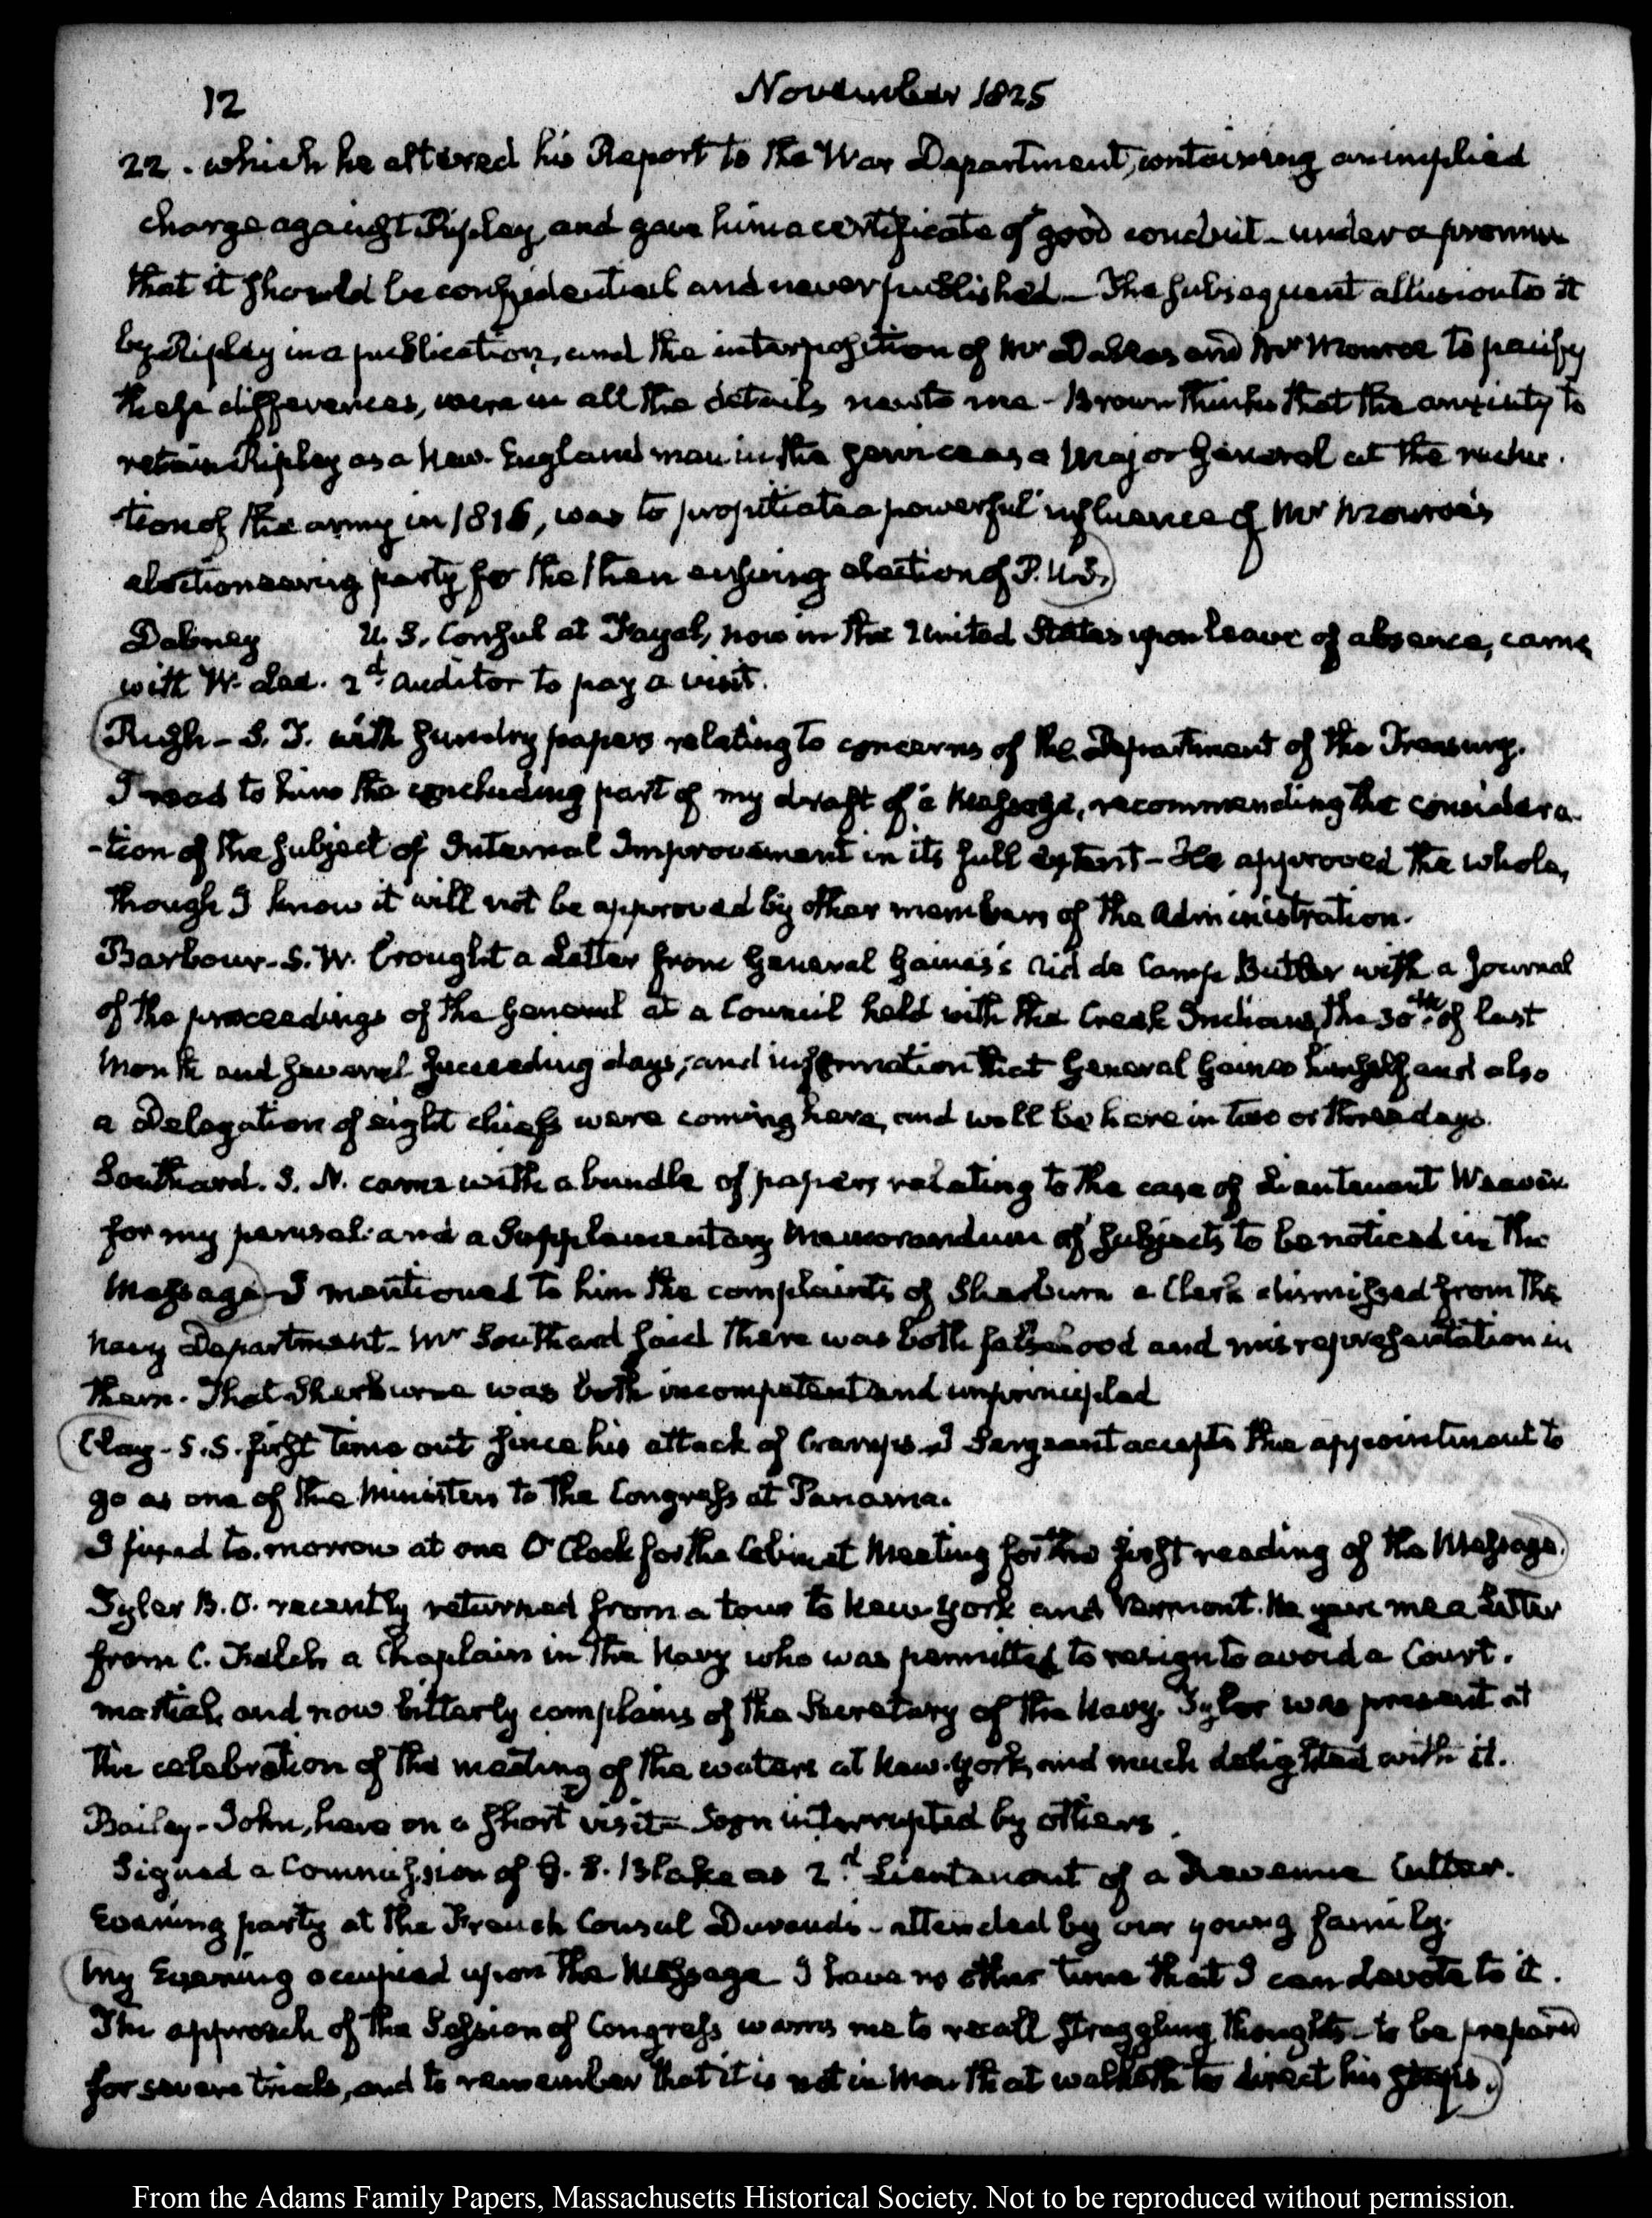 12
November 1825
22. which he altered his Report to the War Department, containing an implied
charge against Ripley, and gave him a certificate of good conduct - under a promise
that it should be confidential and never published - The subsequent allusion to it
by Ripley in a publication, and the interposition of Mr Dallas and Mr Monroe to pacify
these differences, were in all the details new to me - Brown thinks that the anxiety to
retain Ripley as a New-England man in the service as a Major General at the reduc-
tion of the army in 1816, was to propitiate a powerful influence of Mr Monroe's
electioneering party for the then ensuing election of P. U.S.)
Dabney U. S. Consul at Fayal, now in the United States upon leave of absence, came
with W. Lee. 2d. Auditor to pay a visit.
(Rush - S. T. with sundry papers relating to concerns of the Department of the Treasury.
I read to him the concluding part of my draft of a Message, recommending the considera-
-tion of the subject of Internal Improvement in its full extent - He approved the whole,
though I know it will not be approved by other members of the Administration.
Barbour - S. W. brought a Letter from General Gaines's Aid de Camp Butler with a Journal
of the proceedings of the General at a Council held with the Creek Indians, the 30th. of last
Month and several succeeding days; and information that General Gaines himself and also
a Delegation of eight chiefs were coming here, and will be here in two or three days.
Southard. S. N. came with a bundle of papers relating to the case of Lieutenant Weaver
for my perusal and a Supplementary Memorandum of subjects to be noticed in the
Message) I mentioned to him the complaints of Sherburn a Clerk dismissed from the
Navy Department - Mr Southard said there was both falsehood and misrepresentation in
them. That Sherburne was both incompetent and unprincipled
(Clay - S. S. first time out since his attack of Cramps - J Sergeant accepts the appointment to
go as one of the Ministers to the Congress at Panama.
I fixed to-morrow at one O'Clock for the Cabinet Meeting for the first reading of the Message.)
Tyler B. O. recently returned from a tour to New-York and Vermont. He gave me a Letter
from C. Felch a Chaplain in the Navy who was permitted to resign to avoid a Court-
martial, and now bitterly complains of the Secretary of the Navy. Tyler was present at
the celebration of the meeting of the waters at New-York, and much delighted with it.
Bailey - John, here on a short visit - Soon interrupted by others.
Signed a Commission of G. S. Blake as 2d. Lieutenant of a Revenue Cutter.
Evening party at the French Consul Durand's - attended by our young family.
(My Evening occupied upon the Message I have no other time that I can devote to it.
The approach of the Session of Congress warns me to recall straggling thoughts - to be prepared
for severe trials, and to remember that it is not in Man that walketh to direct his steps.)
From the Adams Family Papers, Massachusetts Historical Society. Not to be reproduced without permission.